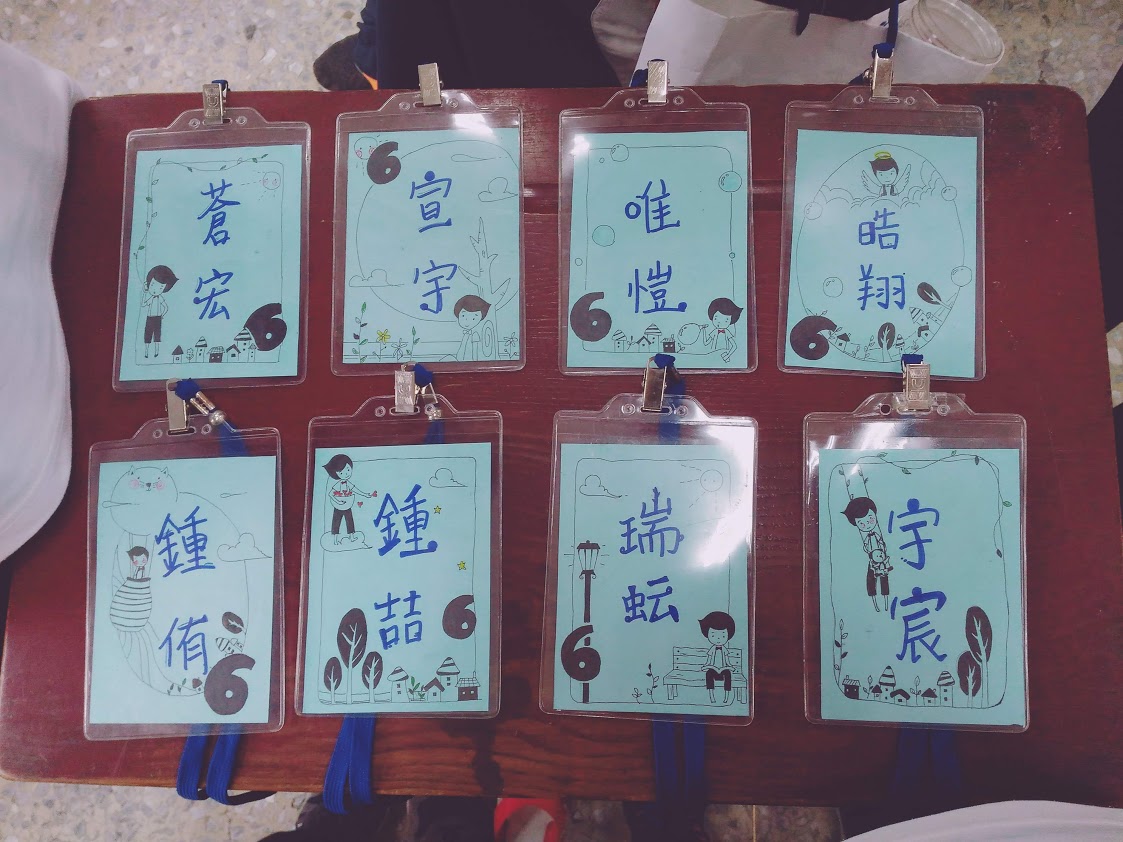 蒼
宏
6
6
宣
宇
唯
愷
6
皓
翔
6
鍾
侑
6
鍾
喆
6
瑞
蚖
6
宇
宸